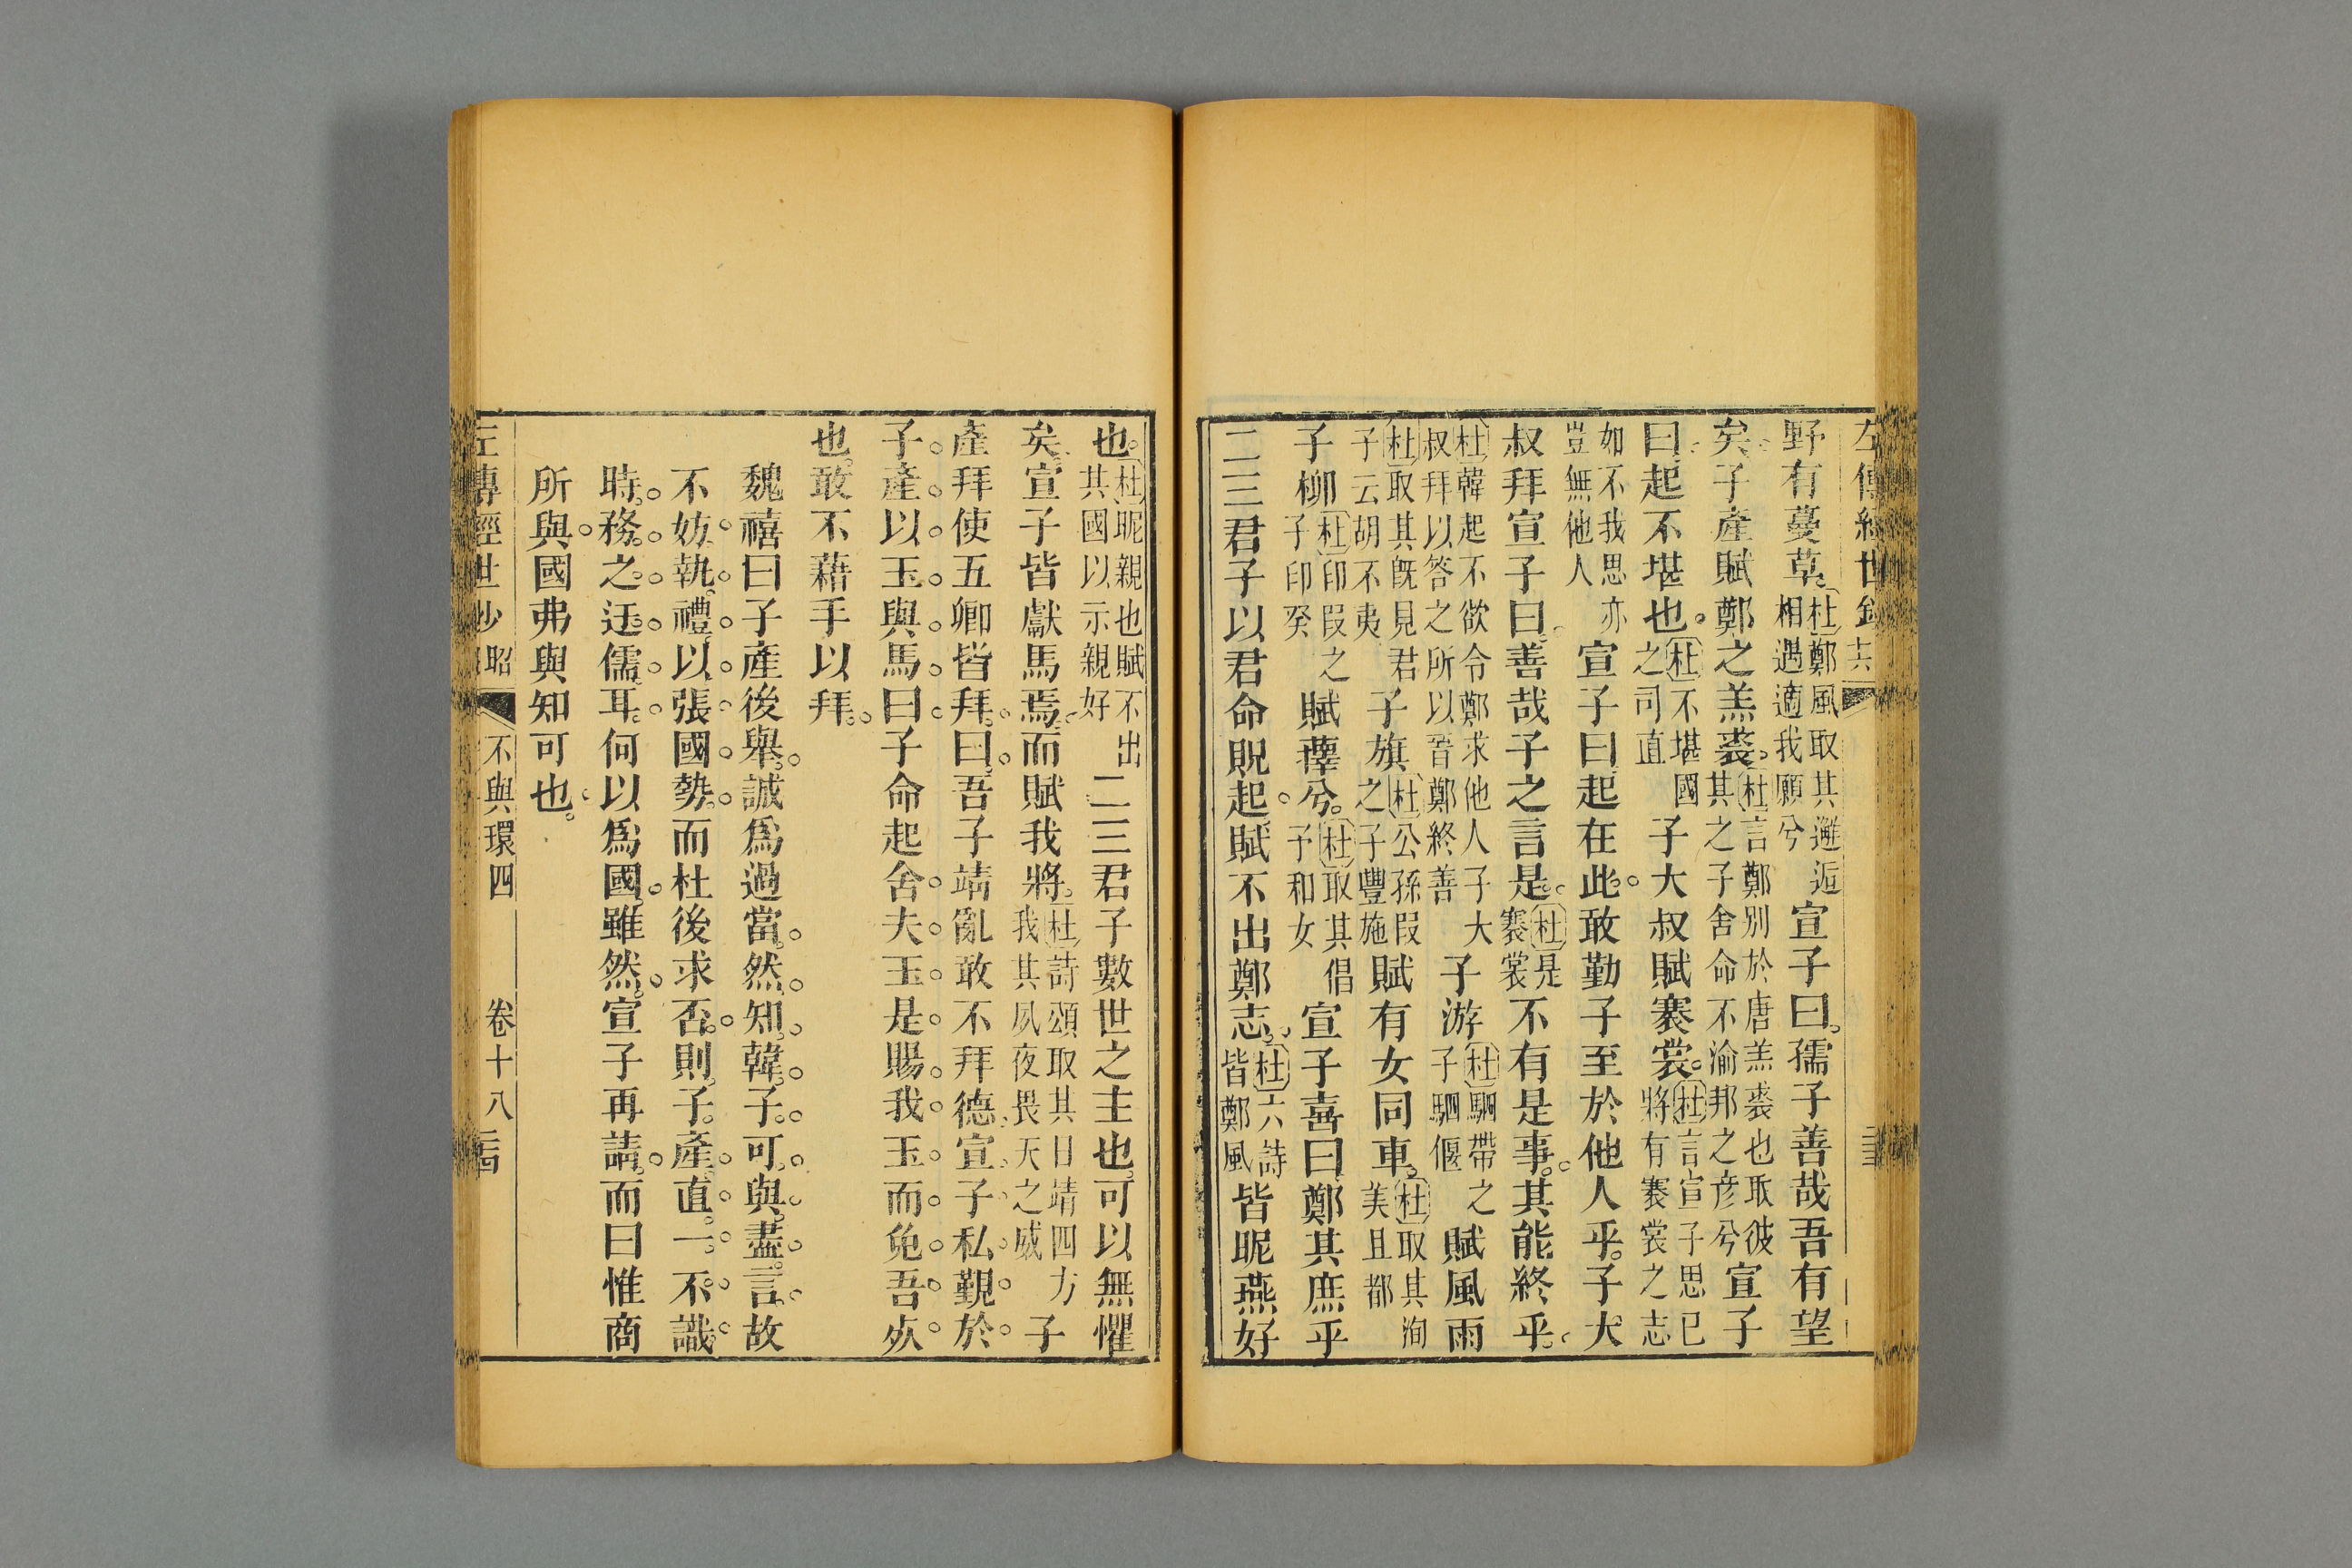 左傳經世鈔
野有蔓草杜鄭風取其邂逅相遇適我願兮宣子曰孺子善哉吾有望
矣子產賦鄭之羔裘杜言鄭別於唐羔裘也取彼其之子舍命不渝邦之彥兮宣子
曰起不堪也杜不堪國之司直子大叔賦褰裳杜言宣子思己將有褰裳之志
如不我思亦豈無他人宣子曰起在此敢勤子至於他人乎子大
叔拜宣子曰善哉子之言是杜是褰裳不有是事其能終乎
杜韓起不欲令鄭求他人子大叔拜以答之所以晉鄭終善子游杜駟帶之子駟偃賦風雨
杜取其旣見君子云胡不夷子旗杜公孫段之子豐施賦有女同車杜取其洵美且都
子柳杜印段之子印癸賦蘀兮杜取其倡予和女宣子喜曰鄭其庶乎
二三君子以君命貺起賦不出鄭志杜六詩皆鄭風皆昵燕好
也杜昵親也賦不出其國以示親好二三君子數世之主也可以無懼
矣宣子皆獻馬焉而賦我將杜詩頌取其日靖四方我其夙夜畏天之威子
產拜使五卿皆拜曰吾子靖亂敢不拜德宣子私覲於
子產以玉與馬曰子命起舍夫玉是賜我玉而免吾死
也敢不藉手以拜
魏禧曰子產後舉誠爲過當然知韓子可與盡言故
不妨執禮以張國勢而杜後求否則子產直一不識
時務之迂儒耳何以爲國雖然宣子再請而曰惟商
所與國弗與知可也
左傳經世鈔 昭 不與環四 卷十八